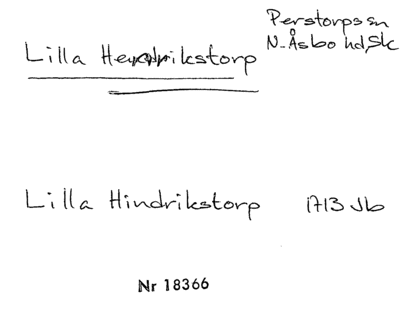 Perstorps sn
Lilla Hendrikstorp N. Åsbo hd, Sk
Lilla Hindrikstorp 1713 Jb
Nr 18366